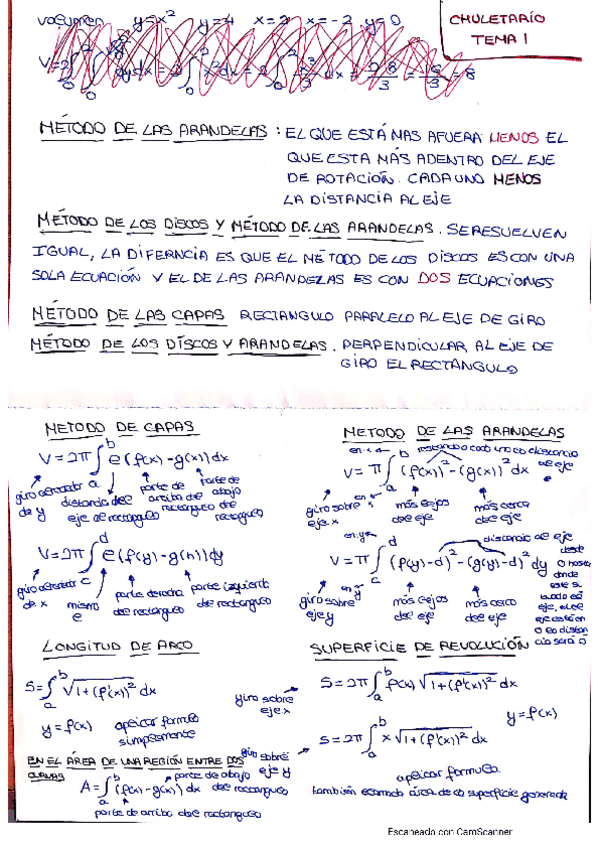 CHULETARIO
TEMA 1
y=x² y=4 x=2 x=-2 y=0
MÉTODO DE LAS ARANDELAS : EL QUE ESTÁ MAS AFUERA MENOS EL
QUE ESTA MÁS ADENTRO DEL EJE
DE ROTACIÓN. CADA UNO MENOS
LA DISTANCIA AL EJE
MÉTODO DE LOS DISCOS Y MÉTODO DE LAS ARANDELAS. SE RESUELVEN
IGUAL, LA DIFERNCIA ES QUE EL MÉTODO DE LOS DISCOS ES CON UNA
SOLA ECUACIÓN Y EL DE LAS ARANDELAS ES CON DOS ECUACIONES
MÉTODO DE LAS CAPAS RECTANGULO PARALELO AL EJE DE GIRO
MÉTODO DE LOS DISCOS Y ARANDELAS. PERPENDICULAR AL EJE DE
GIRO EL RECTÁNGULO
METODO DE CAPAS
V=2π∫ₐᵇ e(f(x)-g(x))dx
giro alrededor de y
distancia del eje al rectangulo
parte de arriba del rectangulo
parte de abajo rectangulo
V=2π∫ᶜᵈ e(f(y)-g(h))dy
giro alrededor de x
mismo e
parte derecha del rectangulo
parte izquierda del rectangulo
METODO DE LAS ARANDELAS
en x restando a cada uno la distancia al eje
V=π∫ₐᵇ (f(x))²-(g(x))² dx
giro sobre eje x
en x
más lejos del eje
más cerca del eje
en y distancia al eje
V=π∫ (f(y)-d)²-(g(y)-d)² dy
giro sobre eje y
en y
más lejos del eje
más cerca del eje
desde
donde
LONGITUD DE ARCO
S=∫ₐᵇ √1+(f'(x))² dx
y=f(x) aplicar formula
simplemente
SUPERFICIE DE REVOLUCIÓN
giro sobre eje x
S=2π∫ₐᵇ f(x)√1+(f'(x))² dx
y=f(x)
giro sobre eje y
S=2π∫ₐᵇ x√1+(f'(x))² dx
aplicar formula
también llamado área de la superficie generada
EN EL ÁREA DE UNA REGIÓN ENTRE DOS
CURVAS
A=∫ₐᵇ (f(x)-g(x)) dx
parte de abajo del rectangulo
parte de arriba del rectangulo
Escaneado con CamScanner